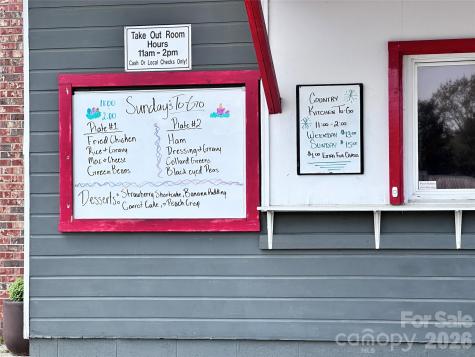 Take Out Room
Hours
11am - 2pm
Cash Or Local Checks Only!
11:00
2:00
Sunday's To Go
Plate #1
Fried Chicken
Rice + Gravy
Mac + Cheese
Green Beans
Plate #2
Ham
Dressing + Gravy
Collard Greens
Black eyed Peas
Desserts - Strawberry Shortcake, Banana Pudding
Carrot Cake, Peach Crisp
Country
Kitchen To-Go
11:00 - 2:00
Weekday $13.00
Sunday $15.00
For Sale
canopy 2026
MLS